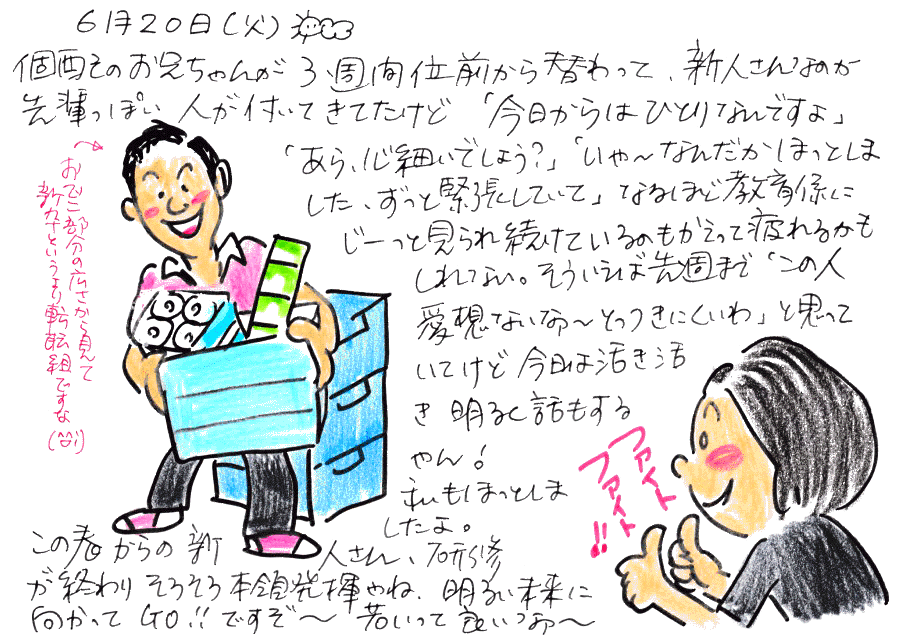 6月20日(火)
個配そのお兄ちゃんが3週間位前から替わって、新人さんなのか
先輩っぽい人が付いてきてたけど「今日からはひとりなんですよ」
「あら、心細いでしょう?」「いや～なんだかほっとしま
した、ずっと緊張していて」なるほど教育係に
じーっと見られ続けているのもかえって疲れるかも
しれない。そういえば先週まで「この人
愛想ないなぁ～とっつきにくいわ」と思って
いてけど今日は活き活
き明るく話もする
やん!
私もほっとしま
したよ。
この春からの新人さん、研修
が終わりそろそろ本領発揮やね、明るい未来に
向かってGO!!ですぞ～若いって良いなぁ～
おでこ部分の広さから見て
新卒というより転職組ですな(^^;)
ファイト
ファイト!!